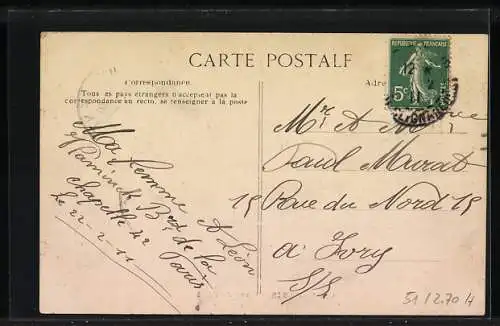 CARTE POSTALE
Correspondance
Tous les pays étrangers n'acceptent pas la
correspondance au recto, se renseigner à la poste
Adre
REPUBLIQUE FRANÇAISE
5c
Ma femme A Léon
Bd de la
Chapelle 42
Paris
Le 22-2-11
Mr A Mme
Paul Murat
15 Rue du Nord 15
a Ivry
S/S
51/2704